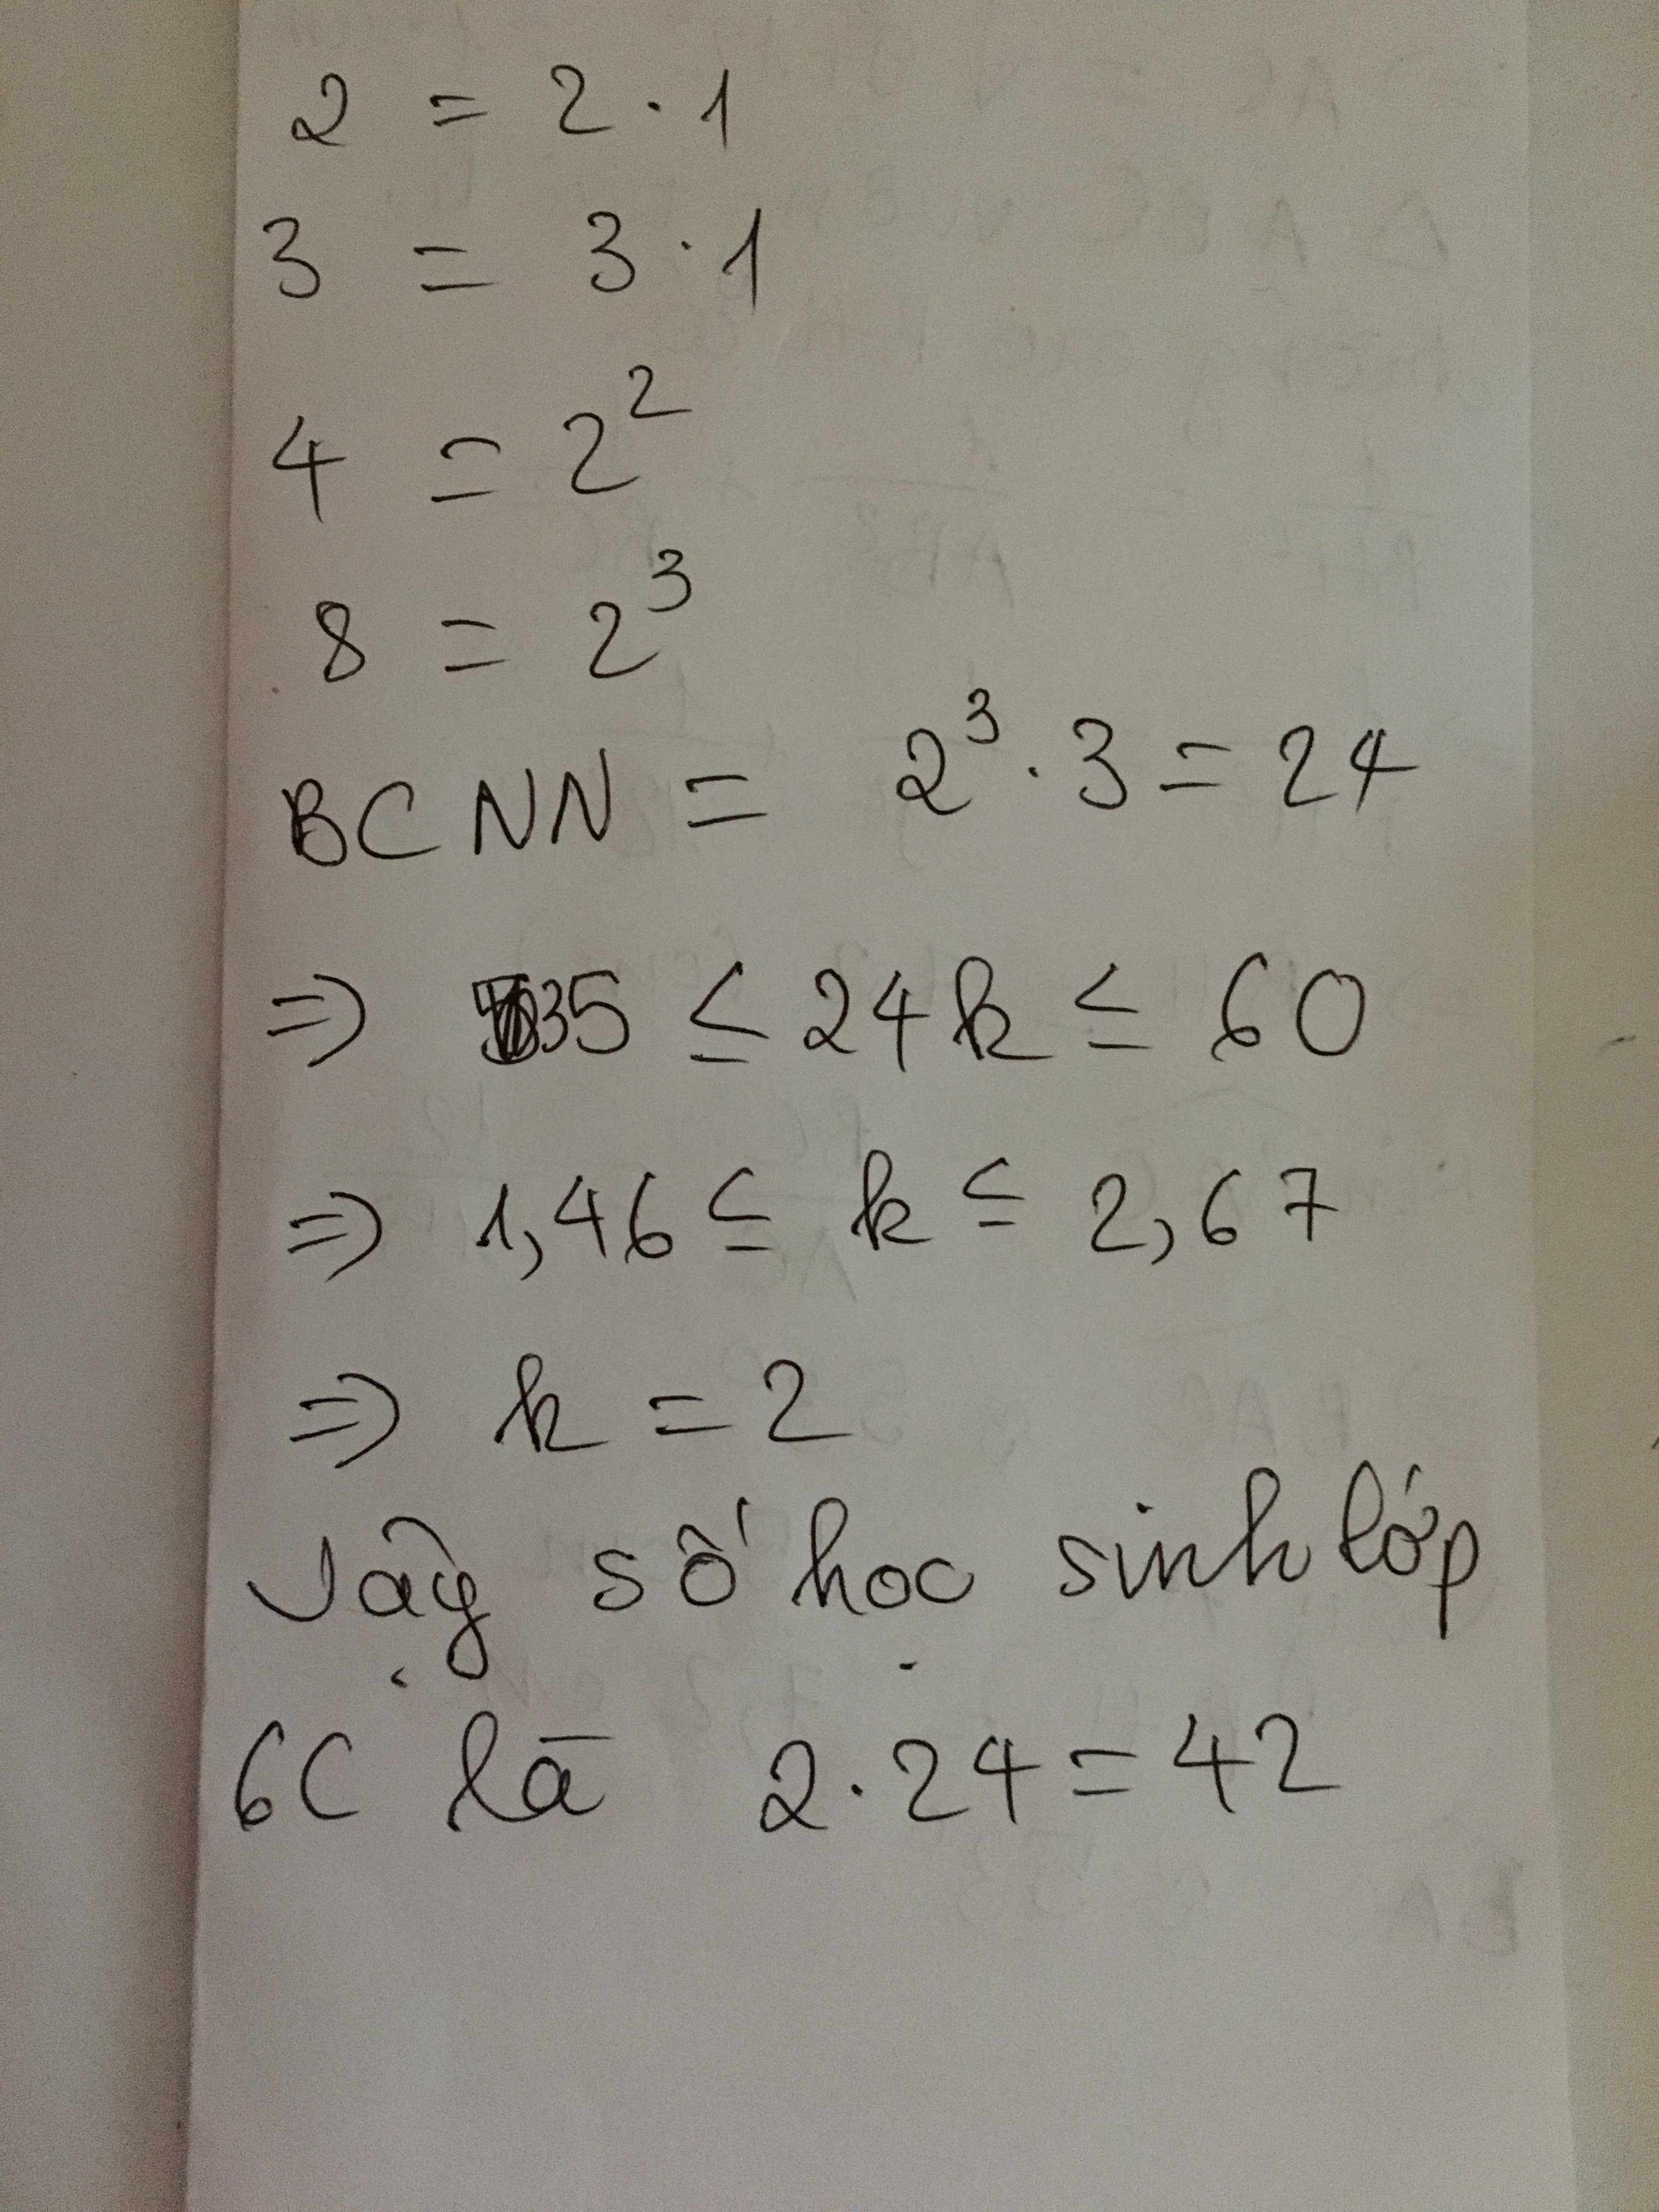 2 = 2 . 1
3 = 3 . 1
4 = 2²
8 = 2³
BCNN = 2³ . 3 = 24
=> 35 ≤ 24k ≤ 60
=> 1,46 ≤ k ≤ 2,67
=> k = 2
Vậy số học sinh lớp
6C là 2 . 24 = 42